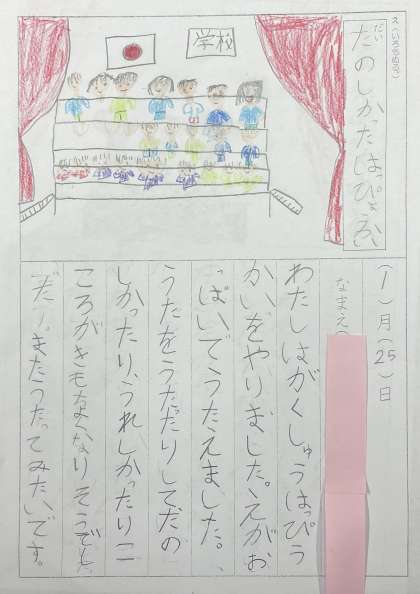 だい
たのしかったはっぴょうかい
学校
(1)月(25)日
なまえ(
わたしはがくしゅうはっぴょう
かいをやりました。えがお
っぱいでうたえました。、
うたをうたたりしてたの
しかったり、うれしかったりこ
ころがきもちよくなりそうでし
た。またうたってみたいです。